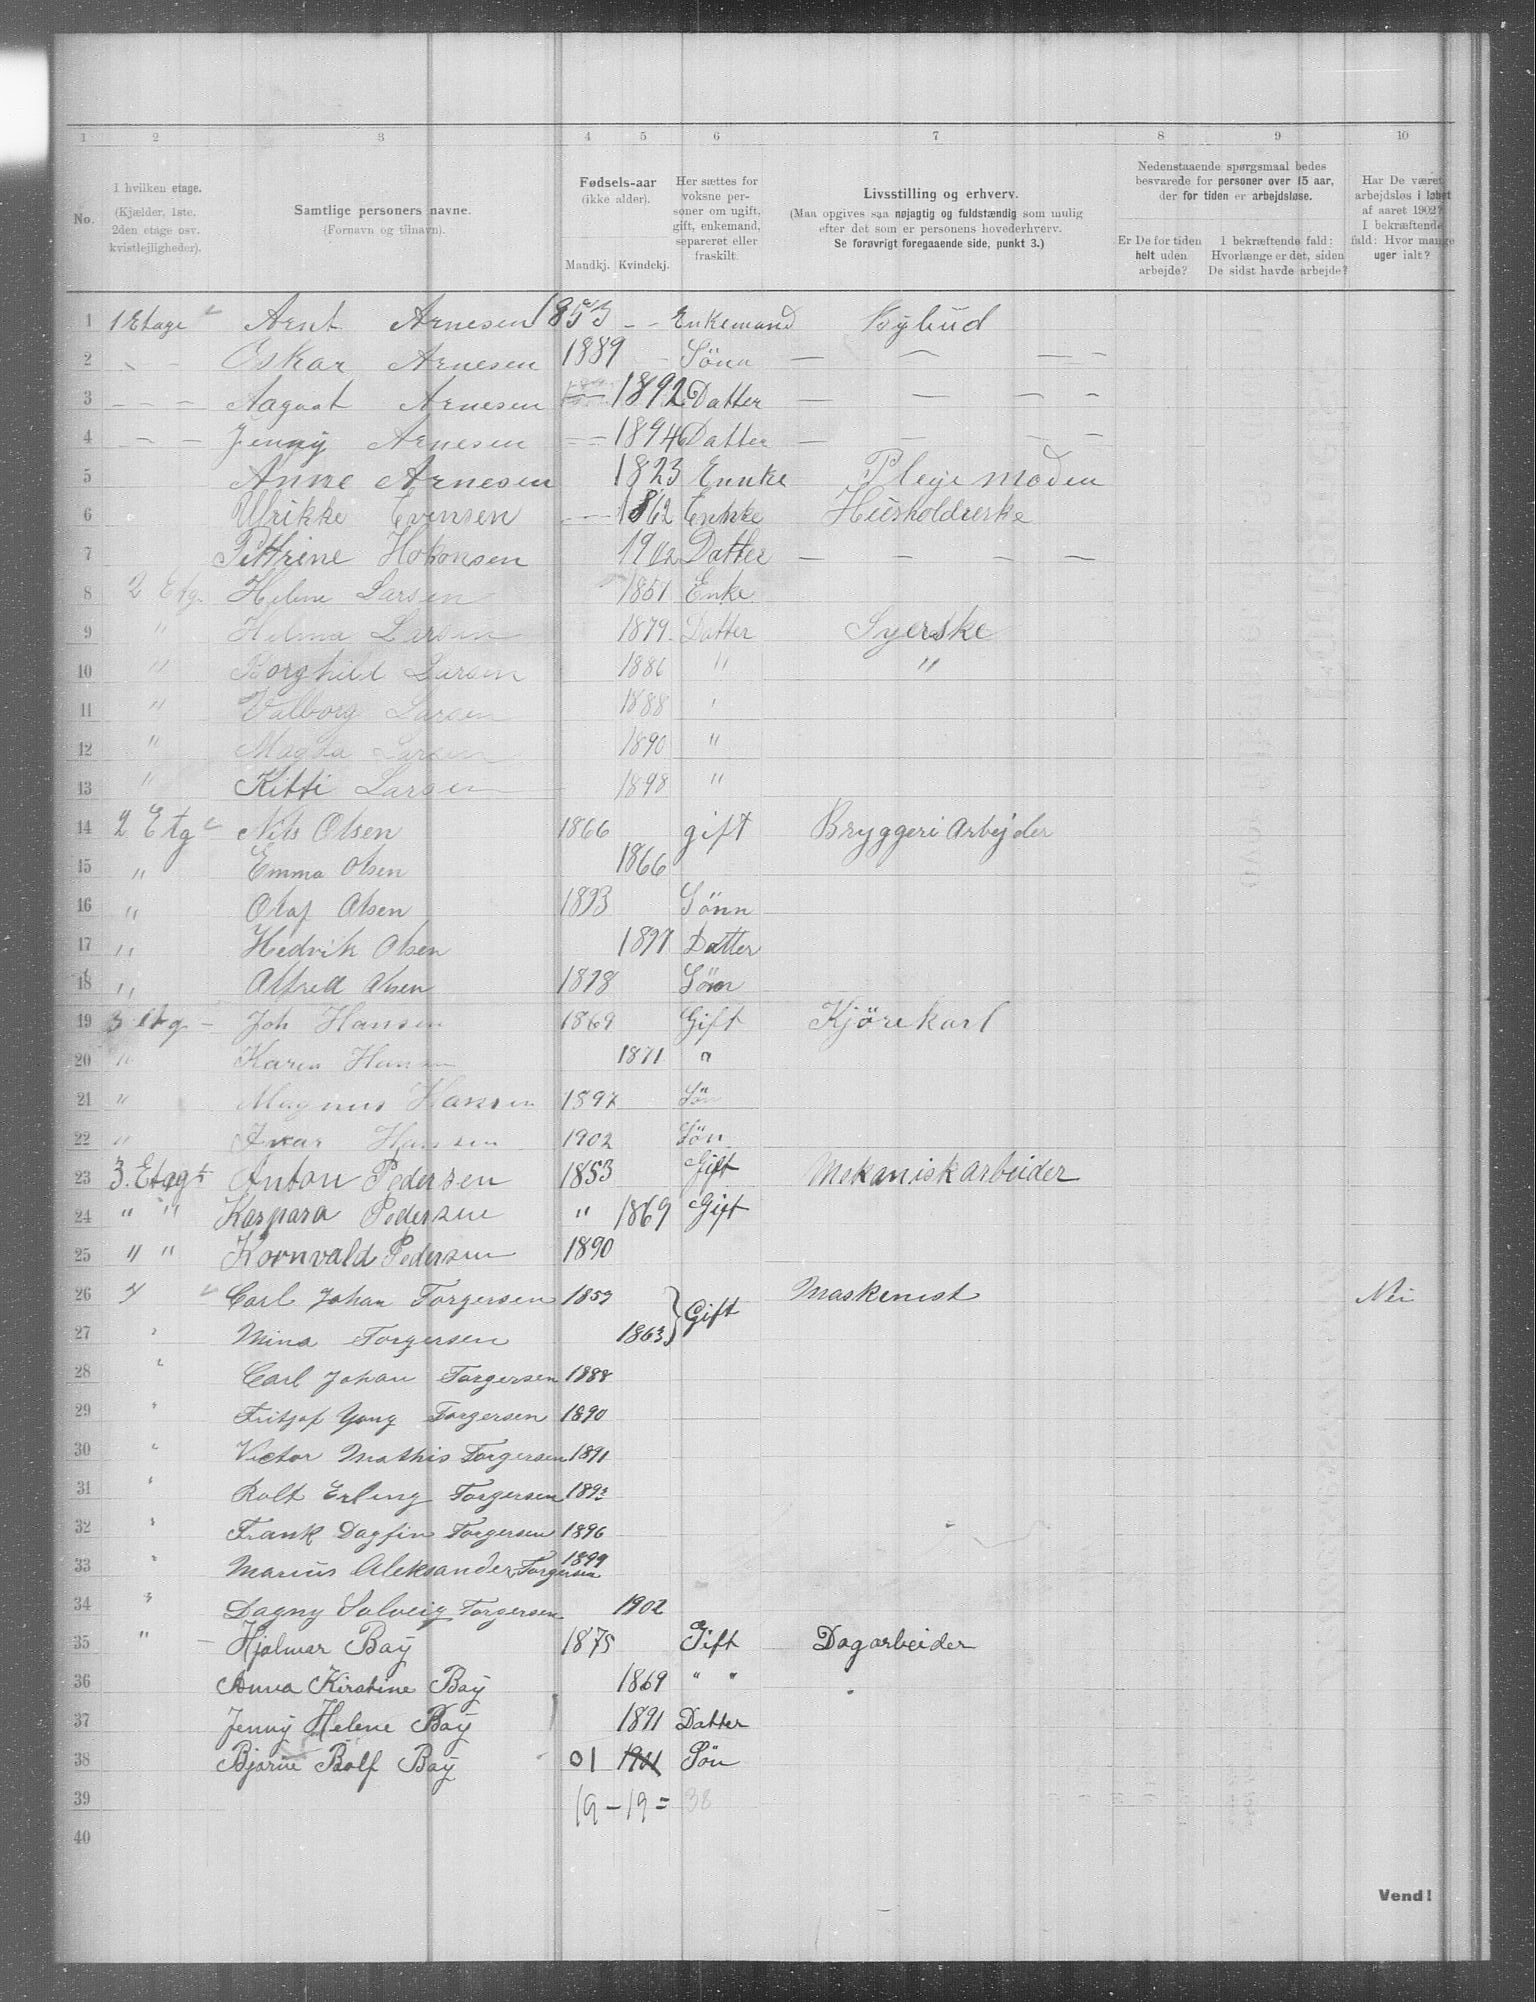 1 2 3 4 5 6 7 8 9 10
No.
I hvilken etage.
(Kjælder, 1ste.
2den etage osv.
kvistlejligheder).
Samtlige personers navne.
(Fornavn og tilnavn).
Fødsels-aar
(ikke alder).
Mandkj. Kvindekj.
Her sættes for
voksne per-
soner om ugift,
gift, enkemand,
separeret eller
fraskilt.
Livsstilling og erhverv.
(Maa opgives saa nøjagtig og fuldstændig som mulig
efter det som er personens hovederhverv.
Se forøvrigt foregaaende side, punkt 3.)
Nedenstaaende spørgsmaal bedes
besvarede for personer over 15 aar,
der for tiden er arbejdsløse.
Er De for tiden
helt uden
arbejde?
I bekræftende fald:
Hvorlænge er det, siden
De sidst havde arbejde?
Har De været
arbejdsløs i løbet
af aaret 1902?
I bekræftende
fald: Hvor mange
uger ialt?
1 1 Etage Arnt Arnesen 1853 - - Enkemand Bybud
2 - - Oskar Arnesen 1889 - Söna — — — -
3 - - - Aagust Arnesen 1892 Datter — — - -
4 - - - Jenny Arnesen - - 1894 Datter — — - -
5 Anne Arnesen 1823 Ennke Pleje moden
6 Ulrikke Evensen - - 1862 Enkke Husholdreske
7 Pettrine Hokonsen 1902 Datter — - — —
8 2 Etg. Helene Larsen 1851 Enke
9 " Helma Larsen 1879 Datter Syerske
10 " Borghild Larsen 1886 " "
11 " Valborg Larsen 1888 "
12 " Magda Larsen 1890 "
13 " Kitti Larsen 1898 "
14 2 Etg Nils Olsen 1866 gift Bryggeri Arbejder
15 " Emma Olsen 1866
16 " Olaf Olsen 1893 Sönn
17 " Hedvik Olsen 1897 Datter
18 " Alfred Olsen 1898 Sönn
19 3 Etg - Joh Hansen 1869 Gift Kjörekarl
20 " Karen Hansen 1871 "
21 " Magnus Hansen 1897 Sön
22 " Ivar Hansen 1902 Sön
23 3. Etag Anton Pedersen 1853 Gift Mekanisk arbeider
24 " " Kaspara Pedersen " 1869 Gift
25 " " Kornvald Pedersen 1890
26 " Carl Johan Torgersen 1859 } Gift Maskenist Nei
27 " Mina Torgersen 1863
28 " Carl Johan Torgersen 1888
29 " Fritjof Yong Torgersen 1890
30 " Victor Mathis Torgersen 1891
31 " Rolf Erling Torgersen 1893
32 " Frank Dagfin Torgersen 1896
33 " Marius Aleksander Torgersen 1899
34 " Dagny Solveig Torgersen 1902
35 " - Hjalmar Bay 1875 Gift Dagarbeider
36 Anna Kirstine Bay 1869 " "
37 Jenny Helene Bay 1891 Datter
38 Bjarne Rolf Bay 01 1901 Sön
39 19 - 19 = 38
40
Vend!